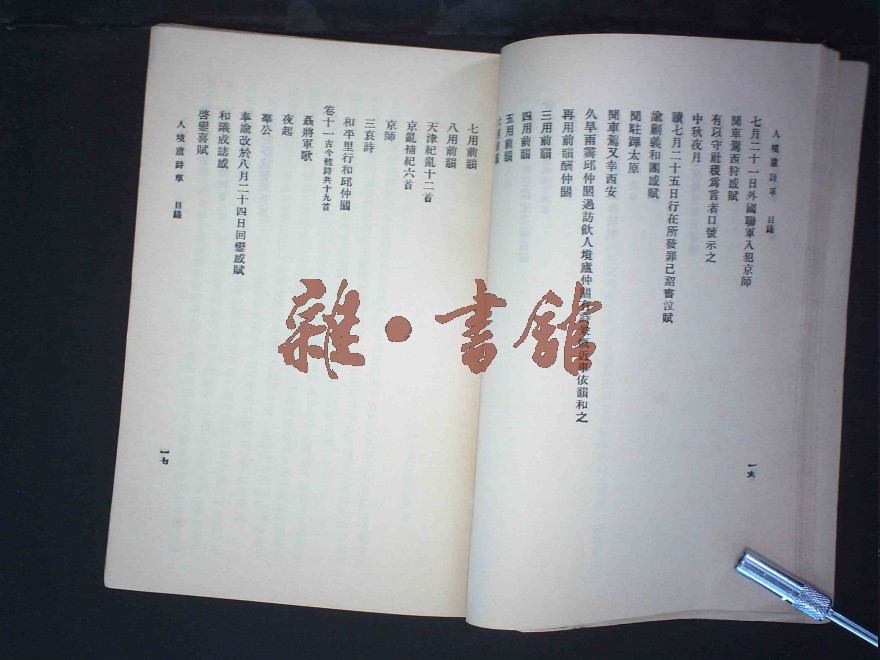 人境廬詩草　目錄
七月二十一日外國聯軍入犯京師
聞車駕西狩感賦
有以守社稷爲言者口號示之
中秋夜月
讀七月二十五日行在所發罪己詔書泣賦
諭剿義和團感賦
聞駐蹕太原
聞車駕又幸西安
久旱雨霽邱仲閼過訪飲人境廬仲閼有詩兼慨近事依韻和之
再用前韻酬仲閼
三用前韻
四用前韻
五用前韻
一六
七用前韻
八用前韻
天津紀亂十二首
京亂補紀六首
京師
三哀詩
和平里行和邱仲閼
卷十一古今體詩共十九首
聶將軍歌
夜起
羣公
奉諭改於八月二十四日回鑾感賦
和議成誌感
啓鑾喜賦
人境廬詩草　目錄
一七
雜·書館